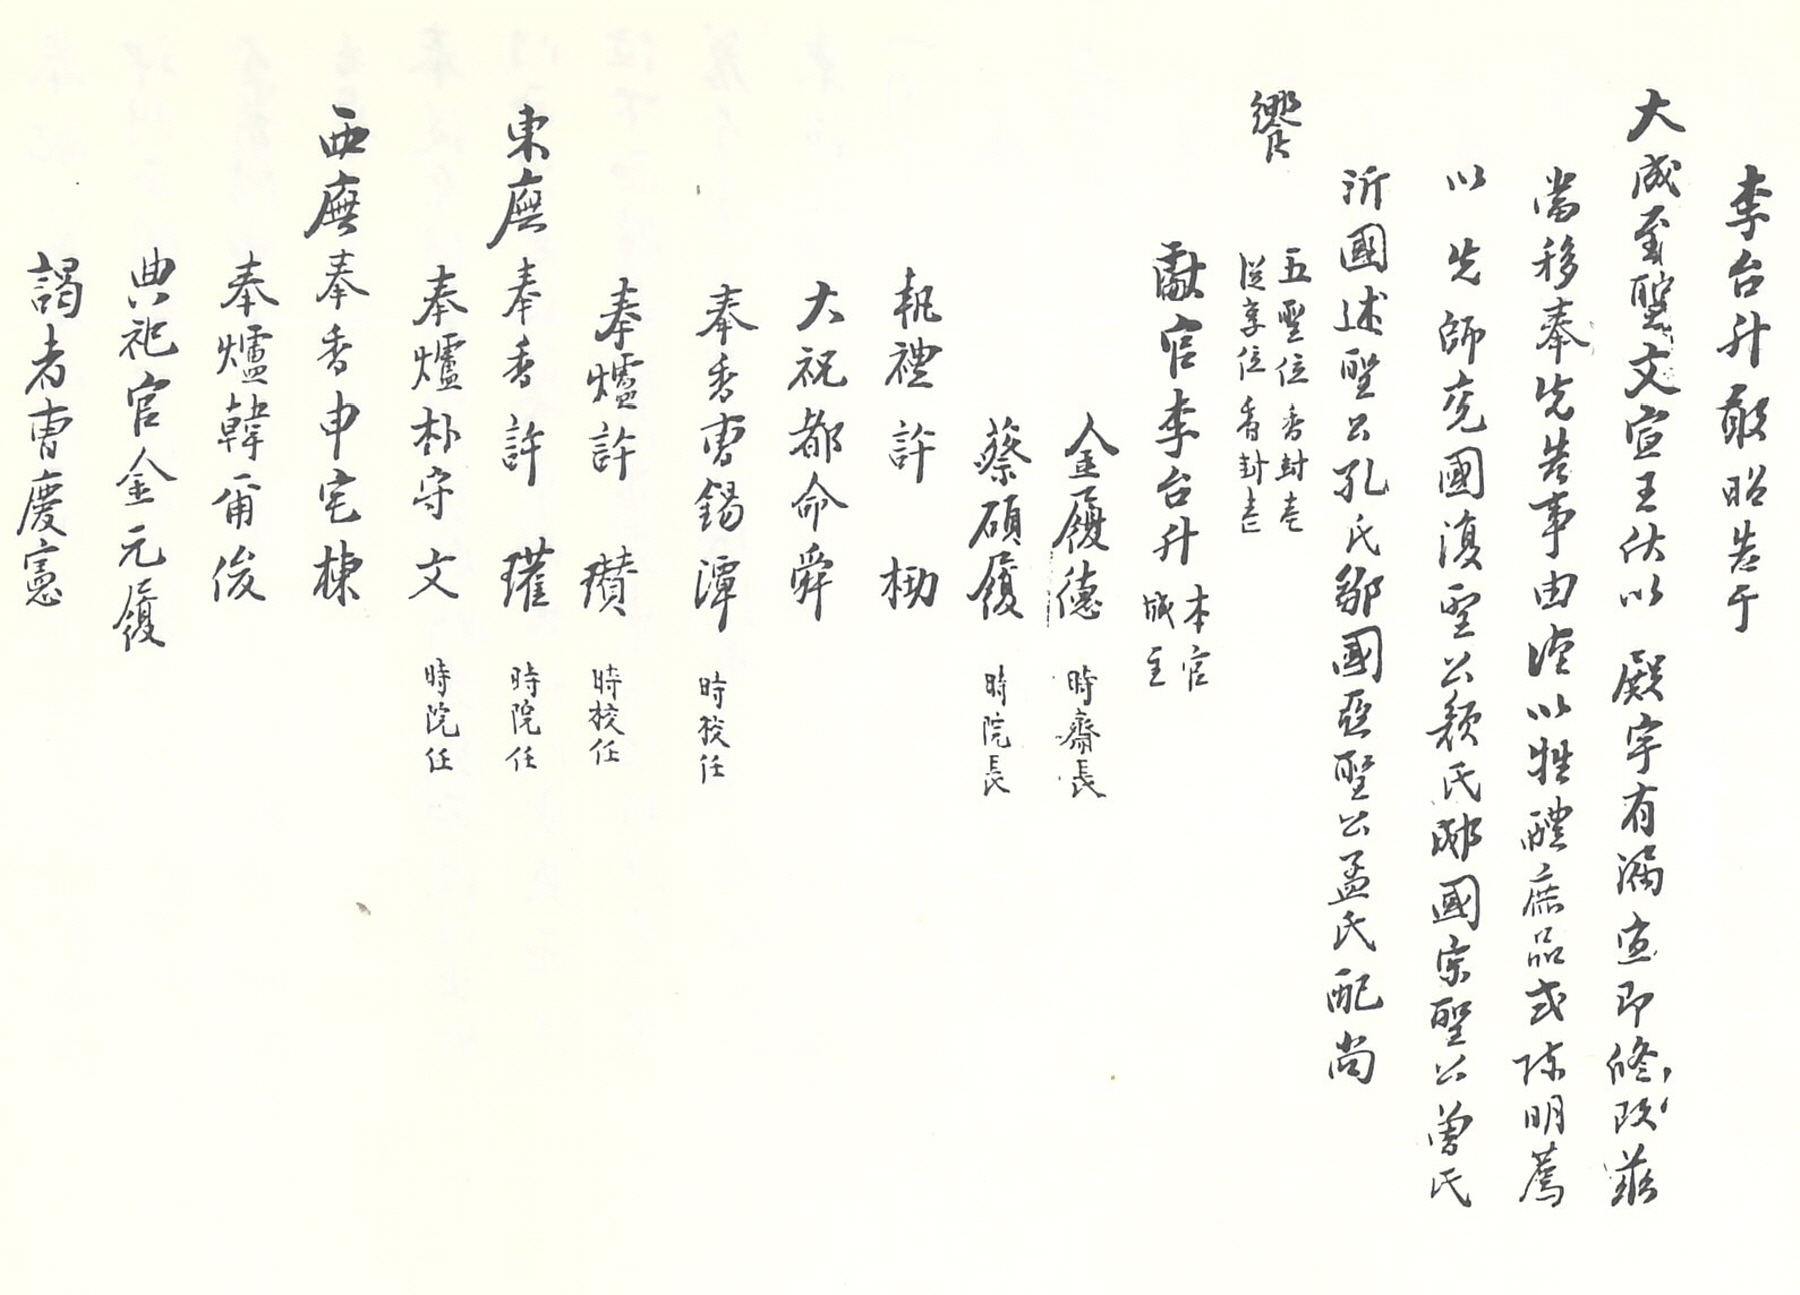 李台升敢昭告于
大成至聖文宣王伏以 殿宇有漏宜即修改茲
當移奉先告事由謹以牲醴庶品式陳明薦
以先師兗國復聖公顔氏郕國宗聖公曾氏
沂國述聖公孔氏鄒國亞聖公孟氏配尚
饗
五聖位香封壹
從享位香封壹
獻官李台升 本官
城主
金履德 時齋長
蔡碩履 時院長
執禮許
大祝都命舜
奉香曺錫潭 時校任
奉爐許 瓚 時校任
東廡奉香許 瓘 時院任
奉爐朴守文 時院任
西廡奉香申宅棟
奉爐韓甫俊
典祀官金元履
謁者曺慶憲